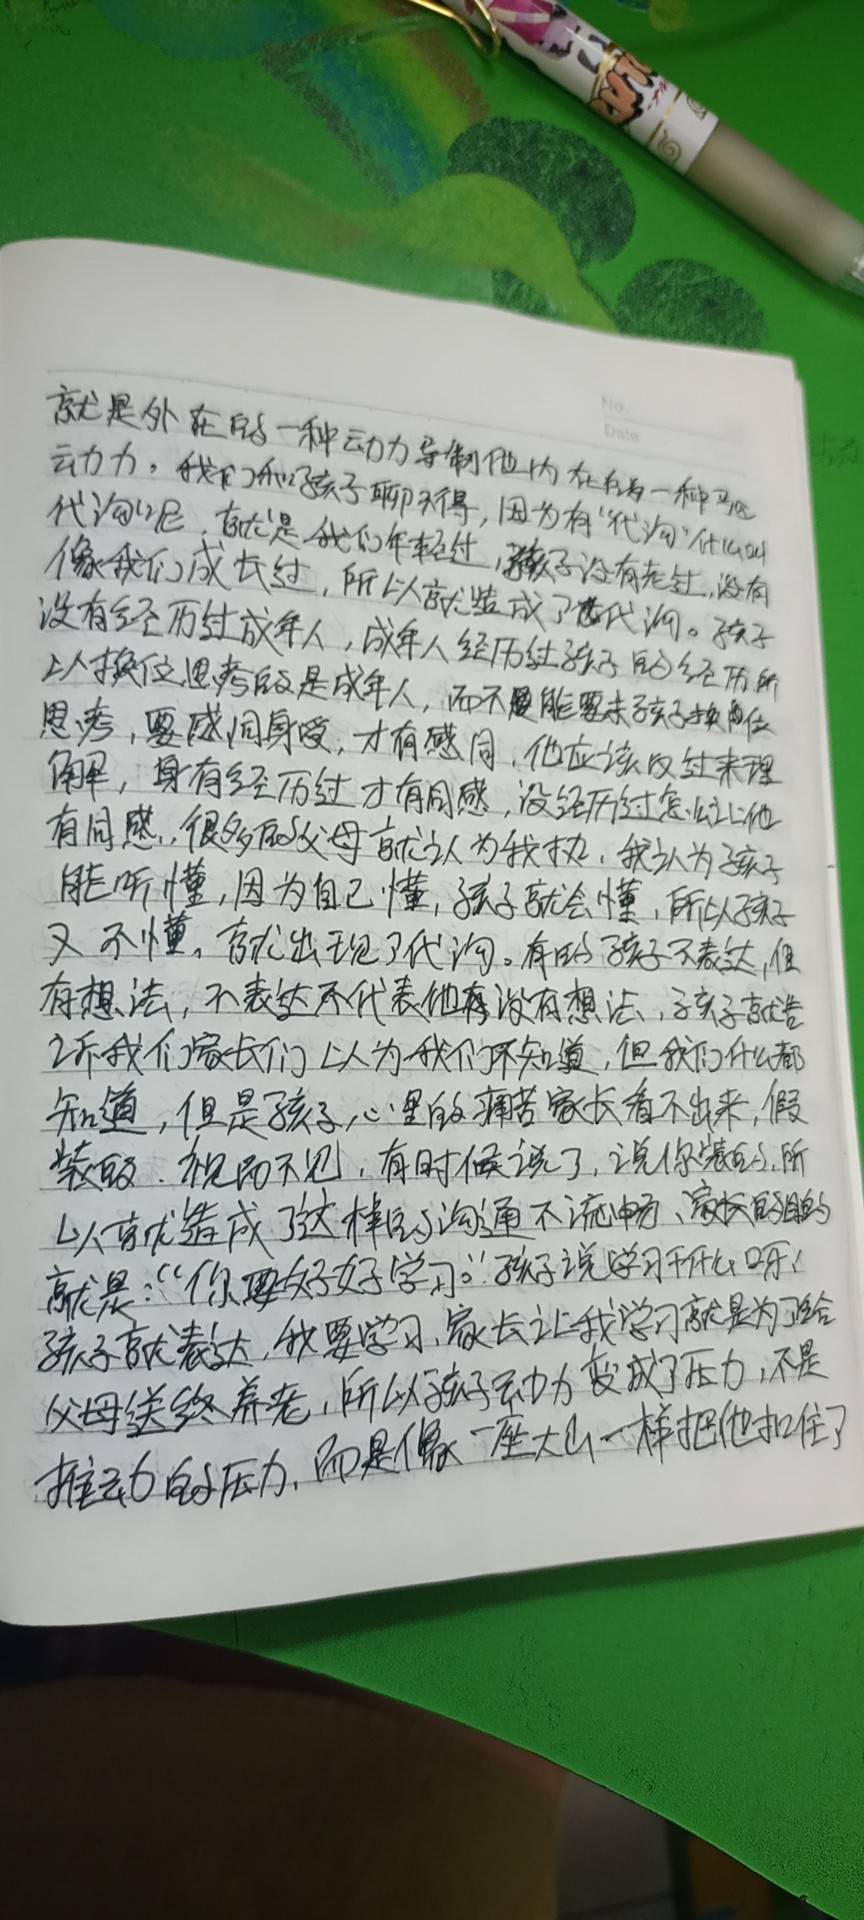 No.
Date
就是外在的一种动力导制他内在有一种
动力。我们和孩子聊不得,因为有“代沟”什么叫
代沟呢,就是我们年轻过,孩子没有老过,没有
像我们成长过,所以就造成了代沟。孩子
没有经历过成年人,成年人经历过孩子的经历所
以换位思考的是成年人,而不能要求孩子换位
思考,要感同身受,才有感同,他应该反过来理
解,身有经历过才有同感,没经历过怎么让他
有同感,很多的父母就认为我,我认为孩子
能听懂,因为自己懂,孩子就会懂,所以孩子
又不懂,就出现了代沟。有的孩子不表达,但
有想法,不表达不代表他没有想法,孩子就告
诉我们家长们以为我们不知道,但我们什么都
知道,但是孩子心里的痛苦家长看不出来,假
装的、视而不见,有时候说了,说你装的,所
以就造成了这样的沟通不流畅、家长的目的
就是:“你要好好学习。”孩子说学习干什么呀,
孩子就表达,我要学习,家长让我学习就是为了给
父母送终养老,所以孩子动力变成了压力,不是
推动的压力,而是像一座大山一样把他扣住了